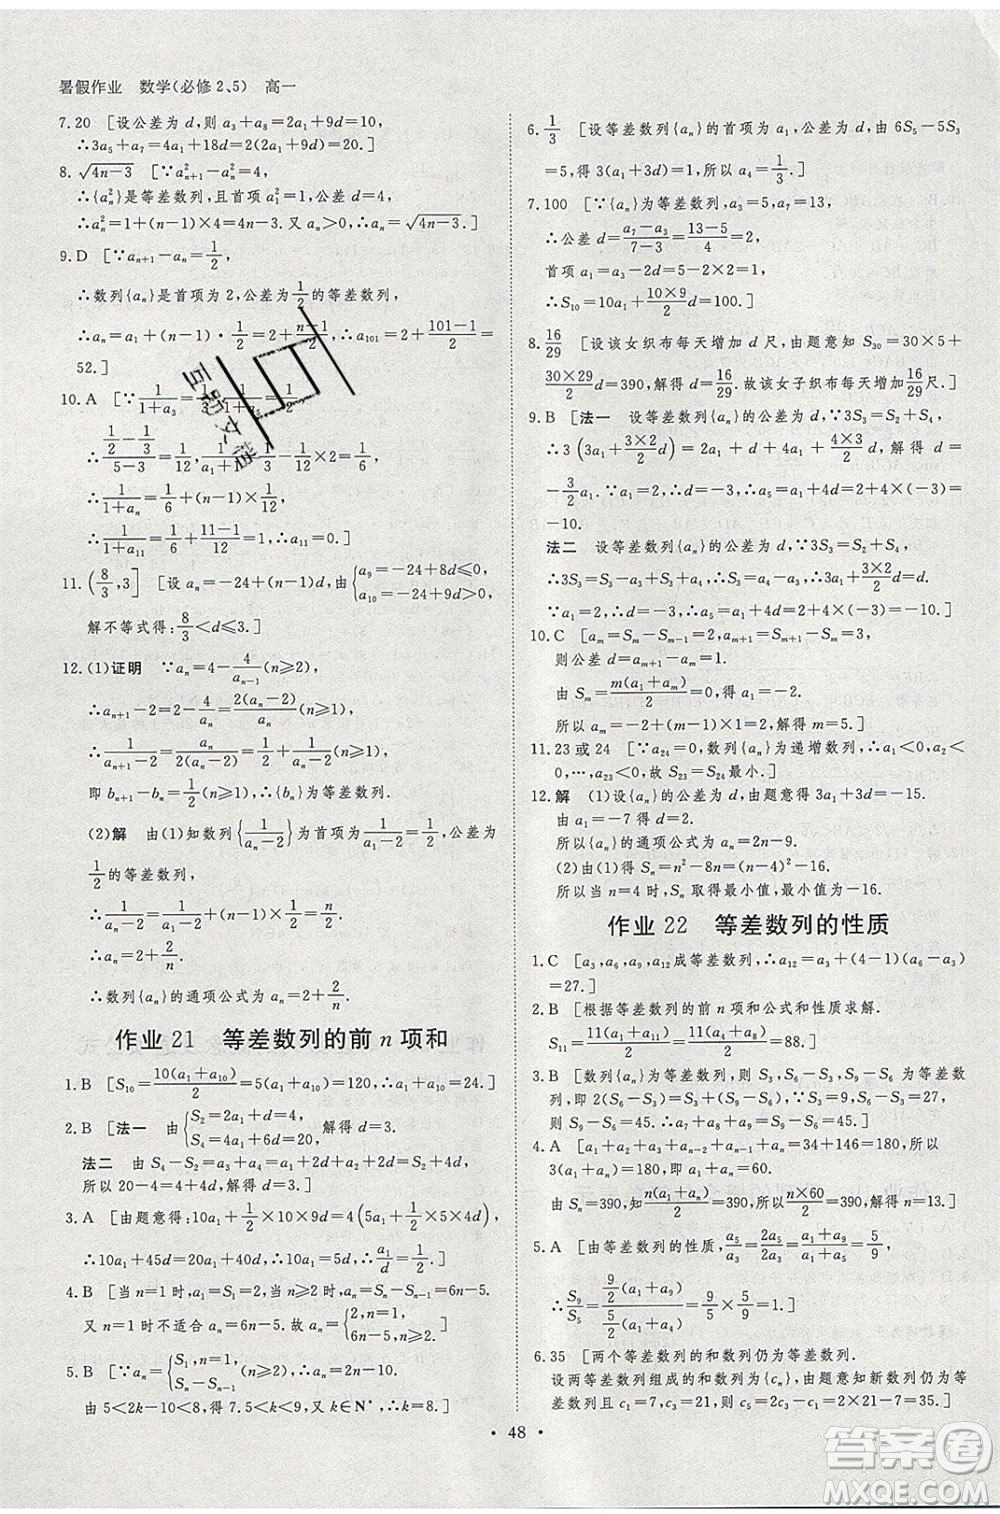 暑假作业　数学(必修2、5)　高一
7.20　[设公差为 d,则 a₃+a₈=2a₁+9d=10,
∴3a₅+a₇=4a₁+18d=2(2a₁+9d)=20.]
8.√(4n-3)　[∵a²ₙ₊₁-a²ₙ=4,
∴{a²ₙ}是等差数列,且首项 a²₁=1,公差 d=4,
∴a²ₙ=1+(n-1)×4=4n-3.又 aₙ>0,∴aₙ=√(4n-3).]
9.D　[∵aₙ₊₁-aₙ=1/2,
∴数列{aₙ}是首项为2,公差为1/2的等差数列,
∴aₙ=a₁+(n-1)·1/2=2+(n-1)/2,∴a₁₀₁=2+(101-1)/2=
52.]
10.A　[∵1/(1+a₃)=1/3,1/(1+a₅)=
(1/2-1/3)/(5-3)=1/12,
∴1/(1+aₙ)=1/12+(n-1)×1/12=n/12,
∴1/(1+a₁₁)=(11+1)/12=1,∴a₁₁=0.]
11.(8/3,3]　[设 aₙ=-24+(n-1)d,由{a₉=-24+8d≤0, a₁₀=-24+9d>0,
解不等式得:8/3<d≤3.]
12.(1)证明　∵aₙ=4-4/aₙ₋₁(n≥2),
∴aₙ₊₁-2=2-4/aₙ=2(aₙ-2)/aₙ(n≥1),
∴1/(aₙ₊₁-2)=aₙ/(2(aₙ-2))=1/2+1/(aₙ-2),∴1/(aₙ₊₁-2)-1/(aₙ-2)=1/2(n≥1),
即 bₙ₊₁-bₙ=1/2,∴{bₙ}为等差数列.
(2)解　由(1)知数列{1/(aₙ-2)}为等差数列,首项为1/(a₁-2)=1/2,公差为
1/2的等差数列,
∴1/(aₙ-2)=1/(a₁-2)+(n-1)×1/2=n/2,∴aₙ=2+2/n.
∴数列{aₙ}的通项公式为 aₙ=2+2/n.
作业21　等差数列的前 n 项和
1.B　[S₁₀=10(a₁+a₁₀)/2=5(a₁+a₁₀)=120,∴a₁+a₁₀=24.]
2.B　[法一　由{S₂=2a₁+d=4, S₄=4a₁+6d=20,解得 d=3.
法二　由 S₄-S₂=a₃+a₄=a₁+2d+a₂+2d=S₂+4d,
所以 20-4=4+4d,解得 d=3.]
3.A　[由题意得:10a₁+1/2×10×9d=4(5a₁+1/2×5×4d),
∴10a₁+45d=20a₁+40d,∴10a₁=5d,∴a₁/d=1/2.]
4.B　[当 n=1时,a₁=S₁=1,当 n≥2时,aₙ=Sₙ-Sₙ₋₁=6n-5.
又 n=1时适合 aₙ=6n-5,
5.B　[∵aₙ={S₁,n=1, Sₙ-Sₙ₋₁,n≥2,∴aₙ=2n-10.
由5<2k-10<8,得7.5<k<9,又 k∈N*,∴k=8.]
6.1/3　[设等差数列{aₙ}的首项为 a₁,公差为 d,由6S₅-5S₃
=5,得3(a₁+3d)=1,所以 a₄=1/3.]
7.100　[∵{aₙ}为等差数列,a₃=5,a₇=13,
∴公差 d=(a₇-a₃)/(7-3)=(13-5)/4=2,
首项 a₁=a₃-2d=5-2×2=1.
∴S₁₀=10a₁+(10×9)/2 d=100.]
8.16/29　[设该女织布每天增加 d 尺,由题意知 S₃₀=30×5+
(30×29)/2 d=390,解得 d=16/29.故该女子织布每天增加16/29尺.]
9.B　[法一　设等差数列{aₙ}的公差为 d,∵3S₃=S₂+S₄,
∴3(3a₁+(3×2)/2 d)=2a₁+d+4a₁+(4×3)/2 d,解得 d=
-3/2 a₁.∵a₁=2,∴d=-3,∴a₅=a₁+4d=2+4×(-3)=
-10.
法二　设等差数列{aₙ}的公差为 d,∵3S₃=S₂+S₄,
∴3S₃=S₃-a₃+S₃+a₄,∴S₃=a₄-a₃,∴3a₁+(3×2)/2 d=d.
∵a₁=2,∴d=-3,∴a₅=a₁+4d=2+4×(-3)=-10.]
10.C　[aₘ=Sₘ-Sₘ₋₁=2,aₘ₊₁=Sₘ₊₁-Sₘ=3,
则公差 d=aₘ₊₁-aₘ=1.
由 Sₘ=m(a₁+aₘ)/2=0,得 a₁=-2.
所以 aₘ=-2+(m-1)×1=2,解得 m=5.]
11.23或24　[∵a₂₄=0,数列{aₙ}为递增数列,∴a₁<0,a₂
<0,…,a₂₃<0,故 S₂₃=S₂₄最小.]
12.解　(1)设{aₙ}的公差为 d,由题意得3a₁+3d=-15.
由 a₁=-7得 d=2.
所以{aₙ}的通项公式为 aₙ=2n-9.
(2)由(1)得 Sₙ=n²-8n=(n-4)²-16.
所以当 n=4时,Sₙ 取得最小值,最小值为-16.
作业22　等差数列的性质
1.C　[a₃,a₆,a₉,a₁₂成等差数列,∴a₁₂=a₃+(4-1)(a₆-a₃)
=27.]
2.B　[根据等差数列的前 n 项和公式和性质求解.
S₁₁=11(a₁+a₁₁)/2=11(a₄+a₈)/2=88.]
3.B　[数列{aₙ}为等差数列,则 S₃,S₆-S₃,S₉-S₆为等差数
列,即2(S₆-S₃)=S₃+(S₉-S₆),∵S₃=9,S₆-S₃=27,则
S₉-S₆=45.∴a₇+a₈+a₉=S₉-S₆=45.]
4.A　[a₁+a₂+a₃+aₙ₋₂+aₙ₋₁+aₙ=34+146=180,所以
3(a₁+aₙ)=180,即 a₁+aₙ=60.
由 Sₙ=390,知n(a₁+aₙ)/2=390,所以(n×60)/2=390,解得 n=13.]
5.A　[由等差数列的性质,a₅/a₃=2a₅/2a₃=(a₁+a₉)/(a₁+a₅)=5/9,
∴S₉/S₅=(9/2(a₁+a₉))/(5/2(a₁+a₅))=9/5×5/9=1.]
6.35　[两个等差数列的和数列仍为等差数列.
设两等差数列组成的和数列为{cₙ},由题意知新数列仍为等
差数列且 c₁=7,c₃=21,则 c₅=2c₃-c₁=2×21-7=35.]
• 48 •
答案卷
MXQE.COM